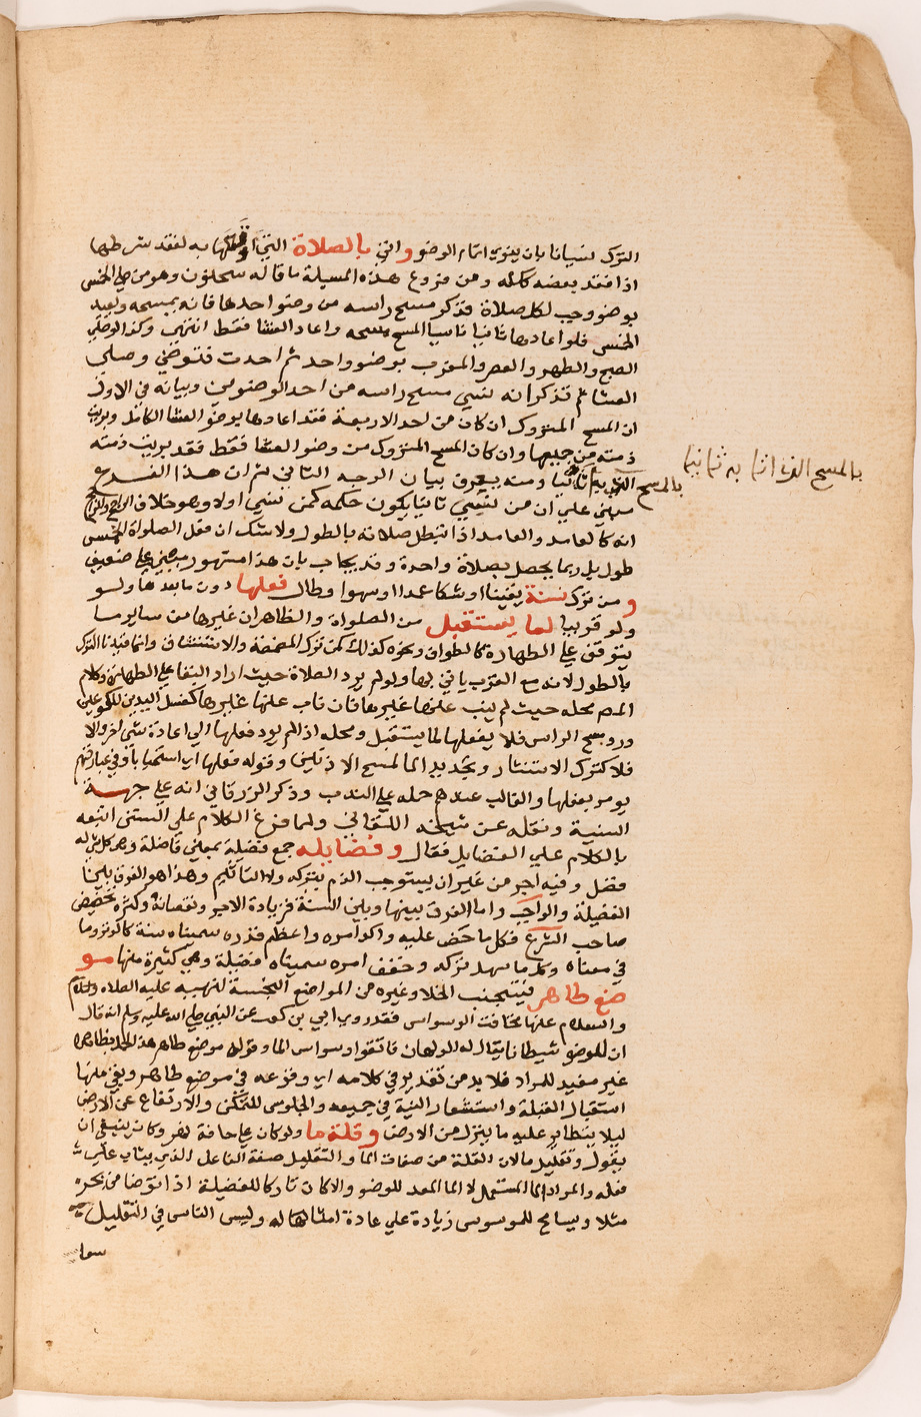 الترك نسيانا بان ينوي اتمام الوضو واتي بالصلاة التي اوقعها به لفقد شرطها
اذا فقد بعضه كله ومن فروع هذه المسيلة ما قاله سحنون وهو من صلي الخمس
بوضو وجب لكل صلاة فذكر مسح راسه من وضو احدها فانه يمسحه ويعيد
الخمس فلو اعادها ثانيا ناسيا المسح مسحه واعاد العشا فقط انتهى وكذا لو صلي
الصبح والظهر والعصر والمغرب بوضو واحد ثم احدث فتوضي وصلي
العشا ثم تذكر انه نسي مسح راسه من احد الوضوين وبيانه في الاول
ان المسح المتروك ان كان من احد الاربعة فقد اعادها بوضو العشا الكامل وبريت
ذمته من جميعها وان كان المسح المتروك من وضو العشا فقط فقد بريت ذمته
بالمسح الذي اتي به ثانيا ومنه يعرف بيان الوجه الثاني ثم ان هذا الفرع
بالمسح الذي اتا به ثانيا
مبني علي ان من نسي ثانيا يكون حكمه كمن نسي اولا وهو خلاف الراجح والراجح
انه كالعامد والعامد اذا تبطل صلاته بالطول ولا شك ان فعل الصلوات الخمس
طول بل ربما يحصل بصلاة واحدة وقد يجاب بان هذا مشهور مبني علي ضعيف
ومن ترك سنة يقينا او شكا عمدا او سهوا وطال فعلها دون ما بعدها ولسو
ولو قريبا لما يستقبل من الصلواة والظاهر ان غيرها من ساير ما
يتوقف علي الطهارة كالطواف ونحوه كذلك كمن ترك المضمضة والاستنشاق وانما قيدنا الترك
بالطول لانه مع القرب ياتي بها ولو لم يرد الصلاة حيث اراد البقا علي الطهارة وكلام
المص محله حيث لم ينب عنها غيرها فان ناب عنها غيرها كغسل اليدين للكوعين
ورد مسح الراس فلا يفعلها لما يستقبل ومحله اذا لم يود فعلها الي اعادة شي اخر والا
فلا كترك الاستنثار وتجديد الما لمسح الاذنين وقوله فعلها اي استحبابا وفي عبارتهم
يومر بفعلها والغالب عندهم حمله علي الندب وذكر الزرقاني انه علي جهة
السنية ونقله عن شيخه اللقاني ولما فرغ الكلام علي السنن اتبعه
بالكلام علي الفضايل فقال وفضايله جمع فضيلة بمعني فاضلة وهو كل شي له
فضل وفيه اجر من غير ان يستوجب الذم بتركه ولا التاثيم وهذا هو الفرق بين
الفضيلة والواجب واما الفرق بينها وبين السنة فزيادة الاجر ونقصانه وكثرة تحضيض
صاحب الشرع فكل ما حض عليه واكد امره واعظم قدره سميناه سنة كالوتر وما
في معناه وكل ما سهل تركه وخفف امره سميناه فضيلة وهي كثيرة منها مو
ضع طاهر فيتجنب الخلا وغيره من المواضع النجسة لنهيه عليه الصلاة والسلام
والسلام عنها مخافت الوسواس فقد روي ابي بن كعب عن النبي صلي الله عليه وسلم انه قال
ان للوضو شيطانا يقال له الولهان فاتقوا وسواس الما وقوله موضع طاهر هذا بظاهره
غير مفيد للمراد فلا بد من تقدير في كلامه اي وقوعه في موضع طاهر وبقي منها
استقبال القبلة واستشعار النية في جميعه والجلوس للتمكن والارتفاع عن الارض
ليلا يتطاير عليه ما ينزل من الارض وقلة ما ولو كان علي حافة نهر وكان ينبغي ان
يقول وتقليل ما لان القلة من صفات الما والتقليل صفة الفاعل الذي يثاب علي
فعله والمراد الما المستعمل لا الما المعد للوضو والا كان تاركا للفضيلة اذا توضا من بحر
مثلا ويسامح للموسوس زيادة علي عادة امثاله وليس الناس في التقليل
سوا